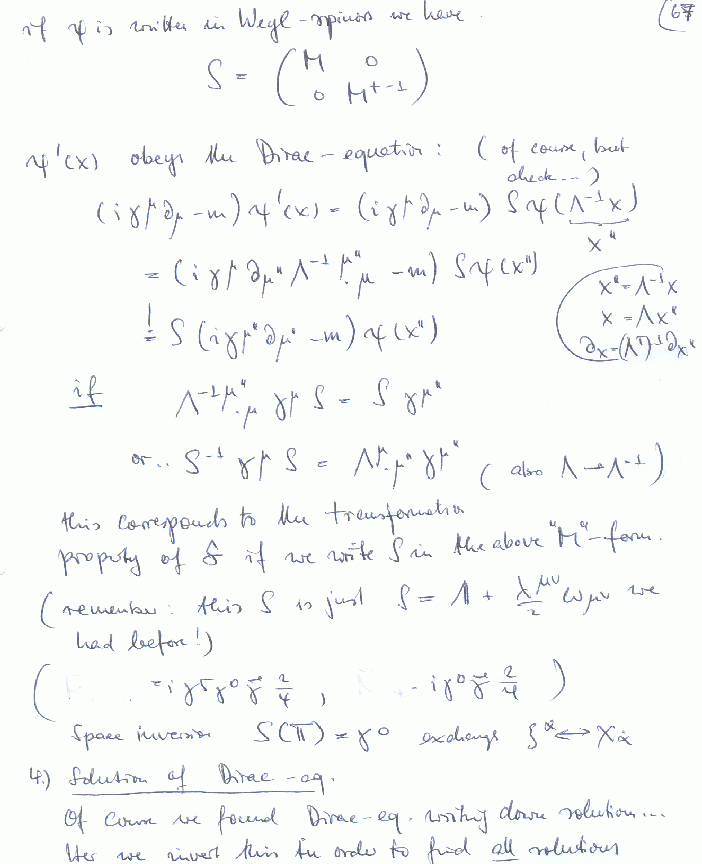 if ψ is written in Weyl-spinors we have (67
S = ( M 0
0 M†⁻¹ )
ψ'(x) obeys the Dirac-equation: ( of course, but
check... )
(iγ^μ ∂_μ - m) ψ'(x) = (iγ^μ ∂_μ - m) S ψ(Λ⁻¹x)
x"
= (iγ^μ ∂_μ" Λ⁻¹ ^μ"._μ - m) S ψ(x")
x" = Λ⁻¹x
x = Λx"
∂_x = (Λᵀ)⁻¹ ∂_x"
!= S (iγ^μ" ∂_μ" - m) ψ(x")
if Λ⁻¹ ^μ"._μ γ^μ S = S γ^μ"
or.. S⁻¹ γ^μ S = Λ^μ._μ" γ^μ" ( also Λ → Λ⁻¹ )
this corresponds to the transformation
property of if we write S in the above "M"-form.
( remember: this S is just S = 1 + λ^μν/2 ω_μν we
had before! )
( = iγ⁵γ⁰γ⃗ 2/4 , - iγ⁰γ⃗ 2/4 )
Space inversion S(π) = γ⁰ exchange ξ^α ↔ χ_α̇
4.) Solution of Dirac-eq.
Of course we found Dirac-eq. writing down solution...
Her we invert this in order to find all solutions